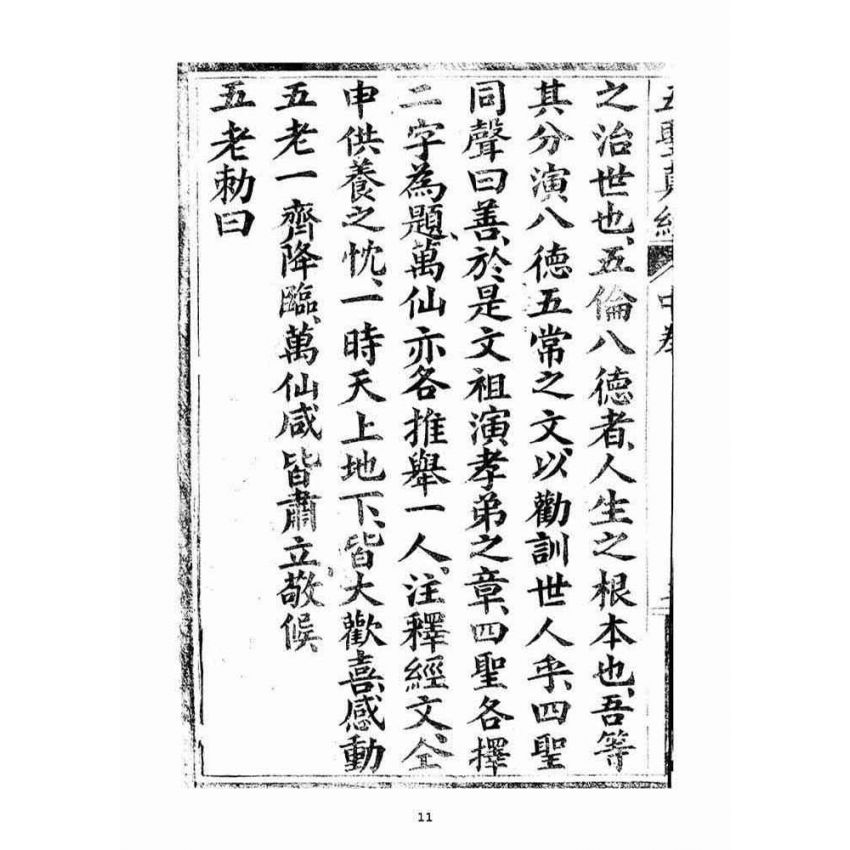 五聖真經 中卷
之治世也、五倫八德者、人生之根本也、吾等
其分演八德五常之文、以勸訓世人乎、四聖
同聲曰善、於是文祖演孝弟之章、四聖各擇
二字為題、萬仙亦各推舉一人、注釋經文、仝
申供養之忱、一時天上地下、皆大歡喜、感動
五老一齊降臨、萬仙咸皆肅立、敬候、
五老勅曰
11